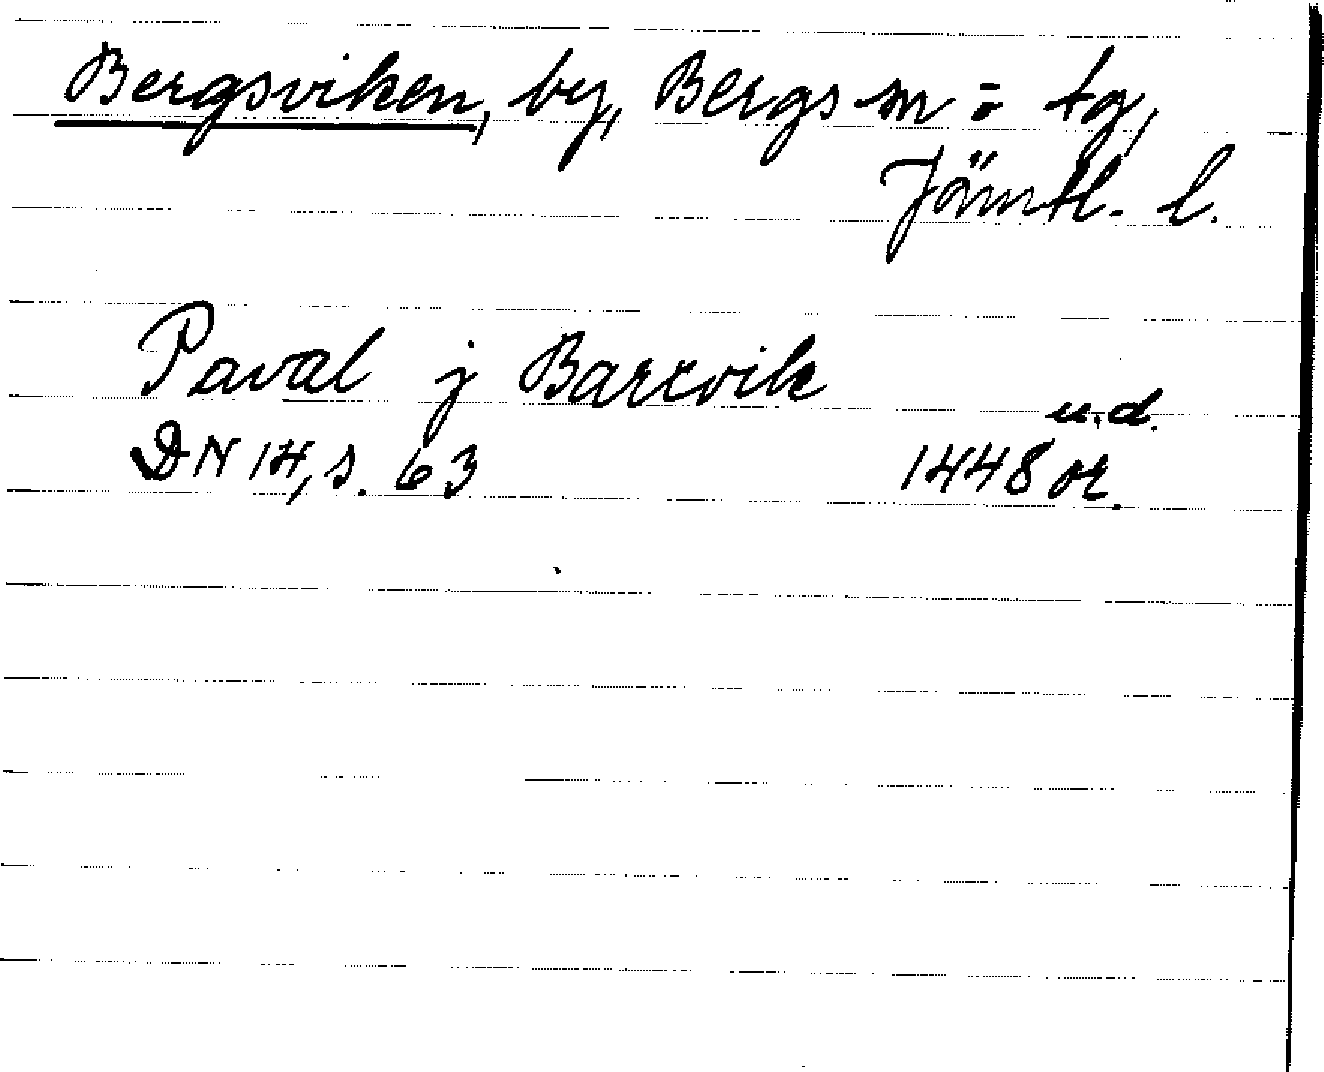 Bergsviken, by, Bergs sn o. tg,
Jämtl. l.
Paval j Barxvik
u.d.
DN 14, s. 63 1448 or.